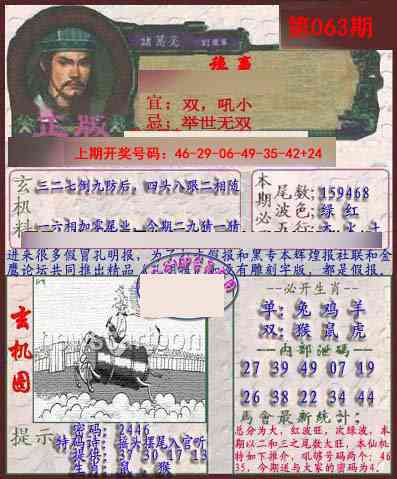 第063期
諸葛亮
正版
宜；双，吼小
忌；举世无双
上期开奖号码：46-29-06-49-35-42+24
玄机料
三二七倒九防后，四头入眼二相随
一六相加零尾业，今期二九猜一猜
本期必
尾数;159468
波色;绿 红
五行;
进来很多假冒孔明报，为了打击假报和黑专本辉煌报社联和金
鹰论坛共同推出精品
有雕刻字版，都是假报，
玄机图
--必开生肖--
单: 兔 鸡 羊
双: 猴 鼠 虎
--内部泄码--
27 39 49 07 19
26 38 22 34 44
馬會最新统计：
总分为大，红波旺，次绿波，本
期以二和三之尾数大旺，本仙机
特如下推介，吼够号码两个：46
35，今期送与大家的密码为4.
提示
密码: 2446
特码诗: 摇头摆尾入官听
提供: 37 30 17 13
生肖: 鼠 , 猴